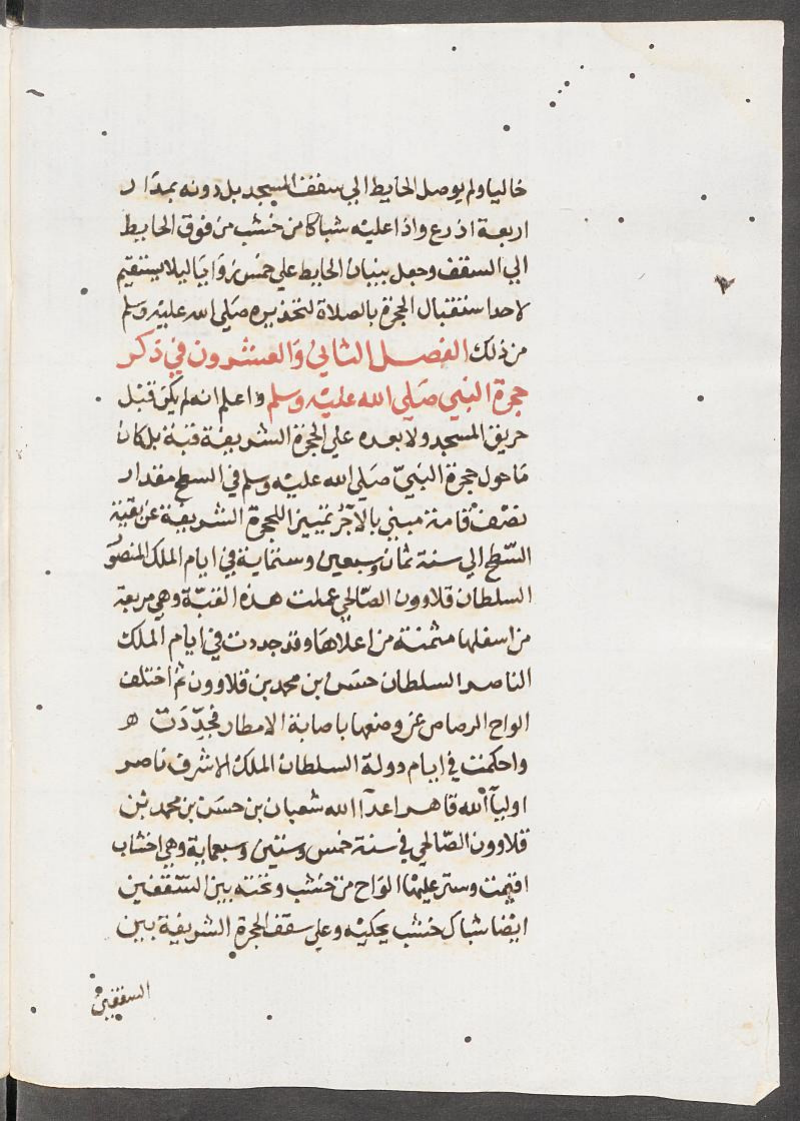 خاليا ولم يوصل الحايط الي سقف المسجد بل دونه بمقدار
اربعة اذرع واذا عليه شباكا من خشب من فوق الحايط
الي السقف وجعل بنيان الحايط علي خمس زوايا ليلا يستقيم
لاحد استقبال الحجرة بالصلاة لتحذيره صلي الله عليه وسلم
من ذلك الفصل الثاني والعشرون في ذكر
حجرة النبي صلي الله عليه وسلم واعلم انه لم يكن قبل
حريق المسجد ولا بعده علي الحجرة الشريفة قبة بل كان
ما حول حجرة النبيّ صلي الله عليه وسلم في السطح مقدار
نصف قامة مبني بالآجر تمييزا للحجرة الشريفة عن بقية
السّطح الي سنة ثمان وسبعين وستماية في ايام الملك المنصور
السلطان قلاوون الصّالحي عملت هذه القبّة وهي مربعة
من اسفلها مثمنة من اعلاها وقد جددت في ايام الملك
الناصر السلطان حسن بن محمد بن قلاوون ثم اختلف
الواح الرصاص عن وضعها باصابة الامطار فجدّدت ه
واحكمت في ايام دولة السلطان الملك الاشرف ناصر
اوليآ الله قاهر اعدآ الله شعبان بن حسن بن محمد بن
قلاوون الصّالحي في سنة خمس وستين وسبعماية وهي اخشاب
اقيمت وستر عليها الواح من خشب وتحته بين السّقفين
ايضا شباك خشب يحكيه وعلي سقف الحجرة الشريفة بين
السقفين